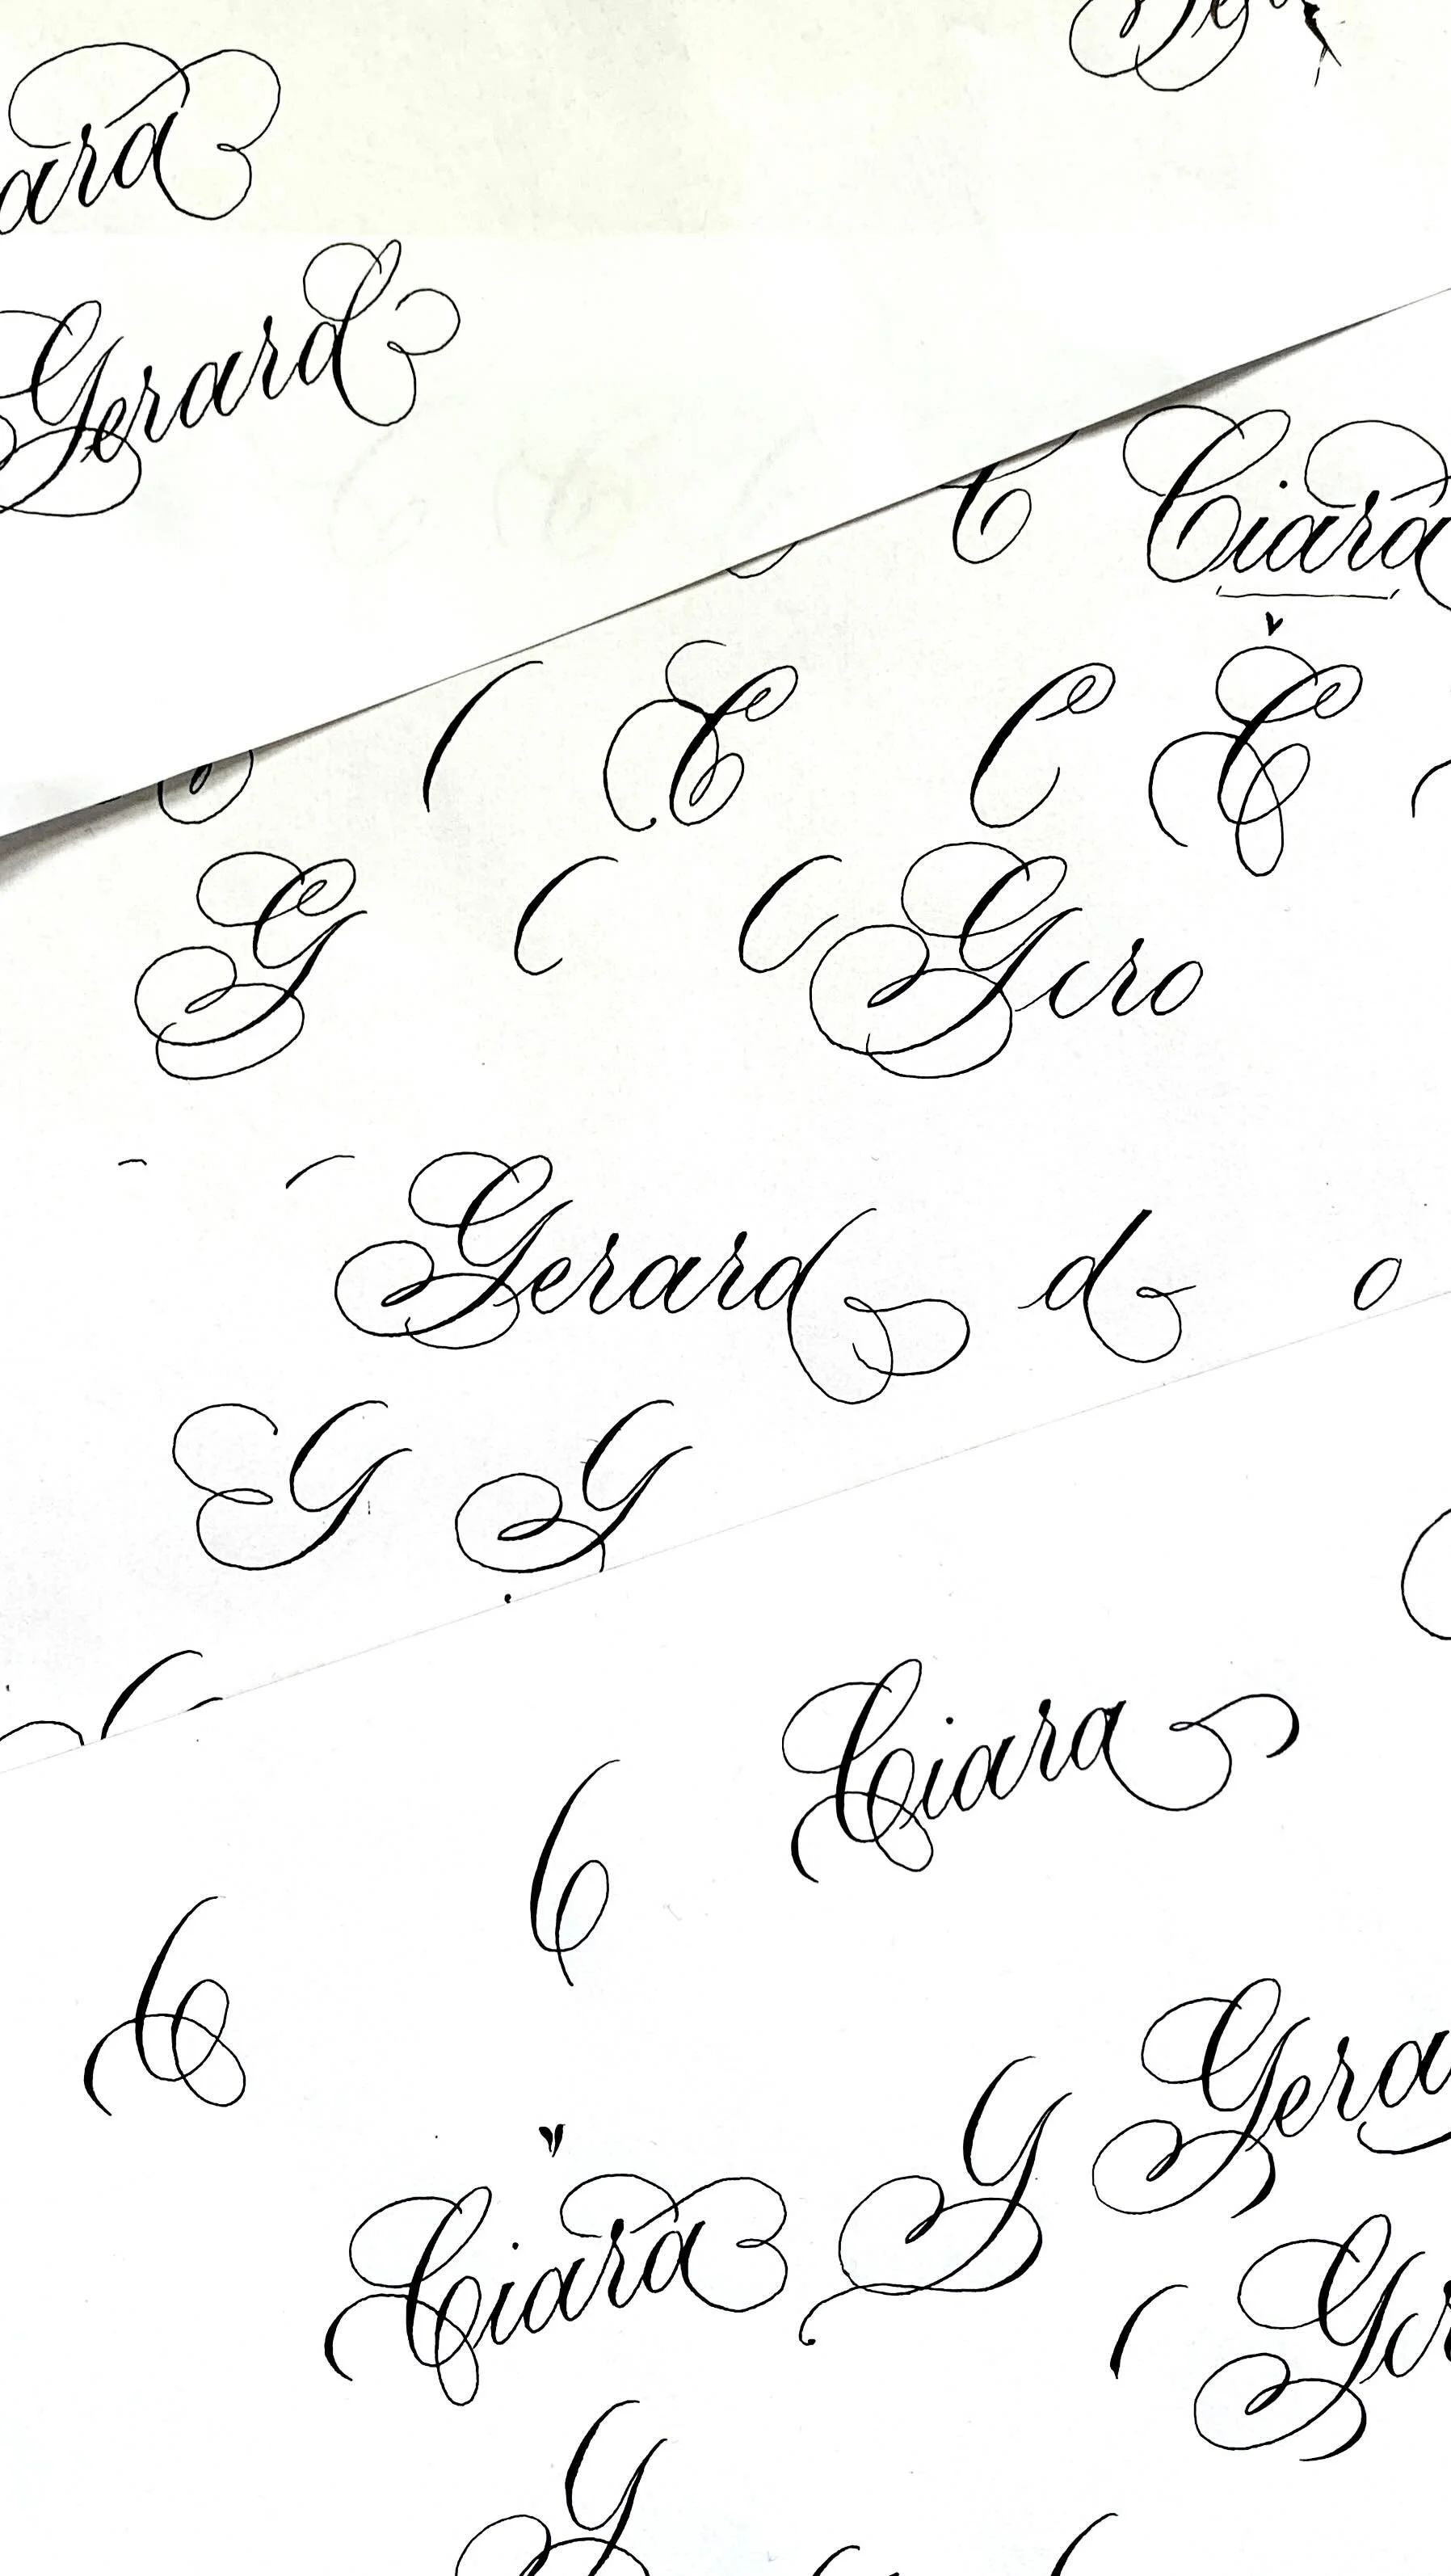 ara
Gerard
C Ciara
C C C
G Gero
Gerard d o
G G
Ciara
C
C
Gera
Ciara G
Ger
G